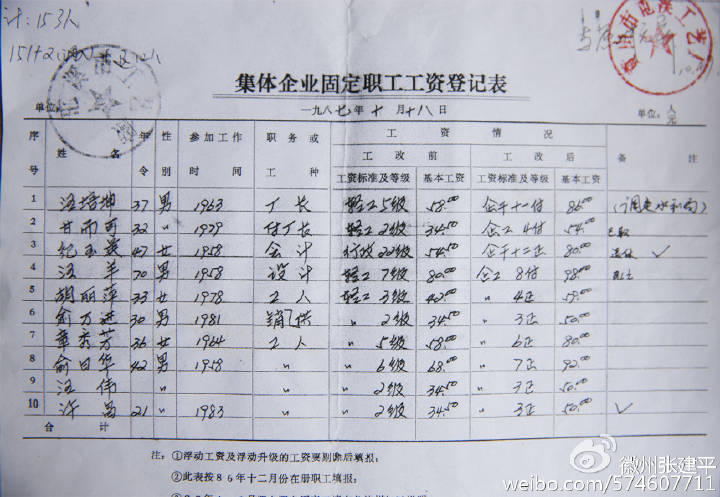 计：153人
集体企业固定职工工资登记表
单位： 一九八七年十月十八日 单位：人 元
序号 姓名 年令 性别 参加工作时间 职务或工种 工资情况 备注
工改前 工改后
工资标准及等级 基本工资 工资标准及等级 基本工资
1 汪培坤 37 男 1963 厂长 轻工5级 58.00 企干十一付 86.00
2 甘而可 32 〃 1979 付厂长 轻工2级 34.50 企工4付 54.00
3 纪玉 47 女 1958 会计 行政22级 54.50 企干十二正 80.00 退休 ✓
4 汪 70 男 1958 设计 轻工7级 80.00 企工8付 98.00
5 胡丽萍 33 女 1978 工人 轻工3级 42.00 〃 4正 59.00
6 俞万进 30 男 1981 销供 〃 2级 34.50 〃 3正 50.00
7 章秀芳 36 女 1964 工人 〃 5级 58.00 〃 6正 80.00
8 俞日华 42 男 1958 〃 〃 6级 68.00 〃 7正 92.00
9 汪伟 〃 〃 2级 34.50 〃 3正 50.00
10 许昌 21 〃 1983 〃 〃 2级 34.50 〃 3正 50.00 ✓
合计
注：①浮动工资及浮动升级的工资要剔除后填报；
②此表按86年十二月份在册职工填报；
徽州张建平
weibo.com/574607711